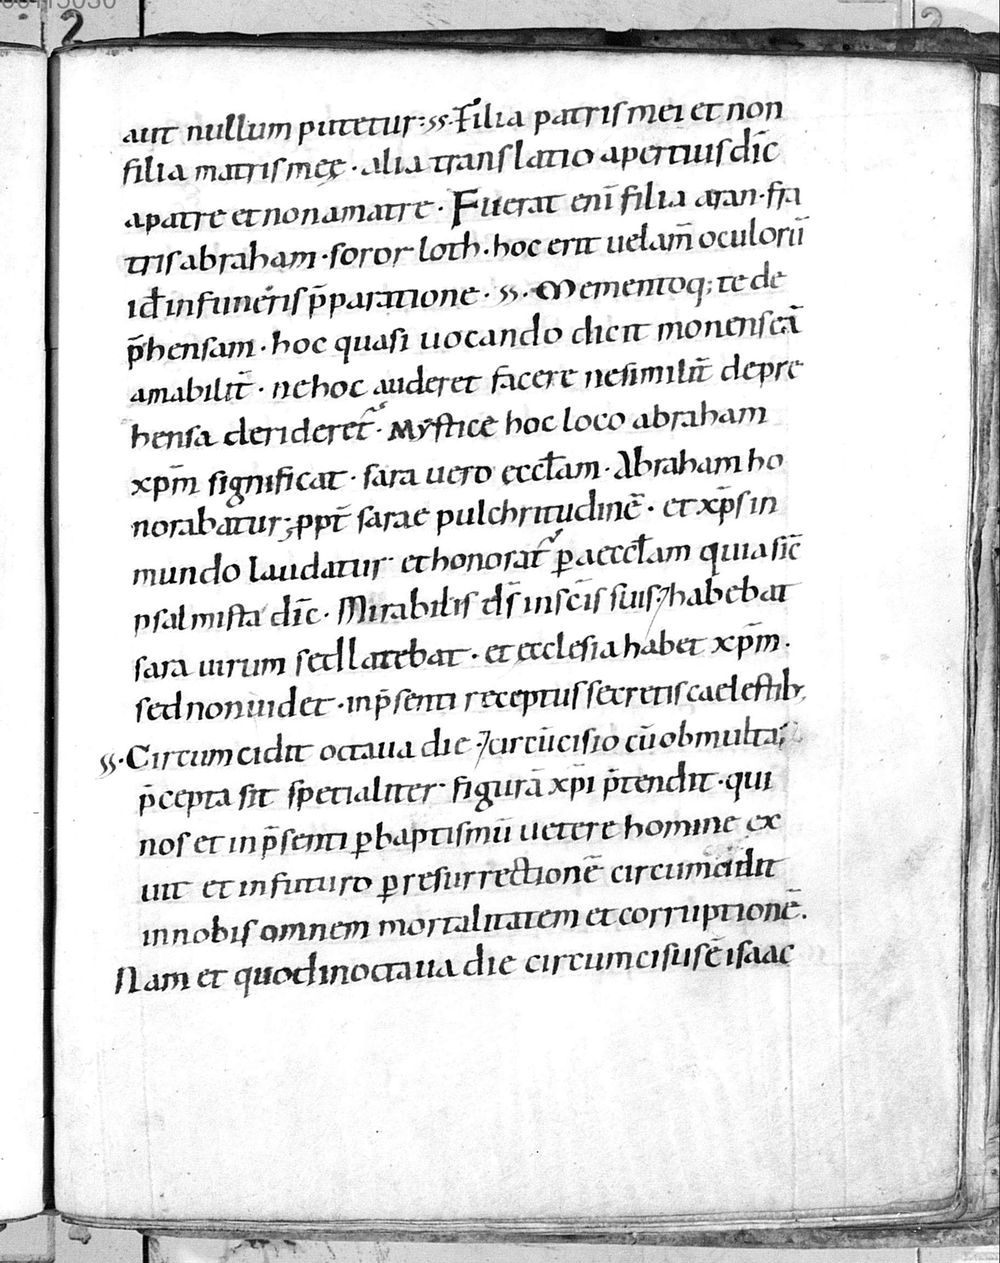 aut nullum putetur; ss. Filia patris mei et non
filia matris meę · alia translatio apertius dic̄
a patre et non a matre · Fuerat eni̅ filia aran · fra
tris abraham · soror loth · hoc erit uelam̅ oculoru̅
id̅ in funeris p̅paratione · ss · Mementoq; te de
p̅hensam · hoc quasi uocando dicit monens ea̅
amabilit̅ · ne hoc auderet facere ne similit̅ depre
hensa derideret᷑ · Mystice hoc loco abraham
xpm̅ significat · sara uero eccl̅am · Abraham ho
norabatur; ppt̅ sarae pulchritudine̅ · et xp̅s in
mundo laudatur et honorat᷑ p̲ aeccl̅am quia sic̅
psalmista dic̅ · Mirabilis d̅s in sc̅is suis; ⁊ habebat
sara uirum sed latebat · et ecclesia habet xpm̅ ·
sed non uidet · in p̅senti receptus secretis caelestib;
ss · Circumcidit octaua die · ⁊ circu̅cisio cu̅ ob multa
p̅cepta sit spetialiter figura̅ xpi̅ p̅tendit · qui
nos et in p̅senti p̲ baptismu̅ uetere homine ex
uit et in futuro p̲ resurrectione̅ circumcidit
in nobis omnem mortalitatem et corruptione̅.
Nam et quod in octaua die circumcisus e̅ isaac